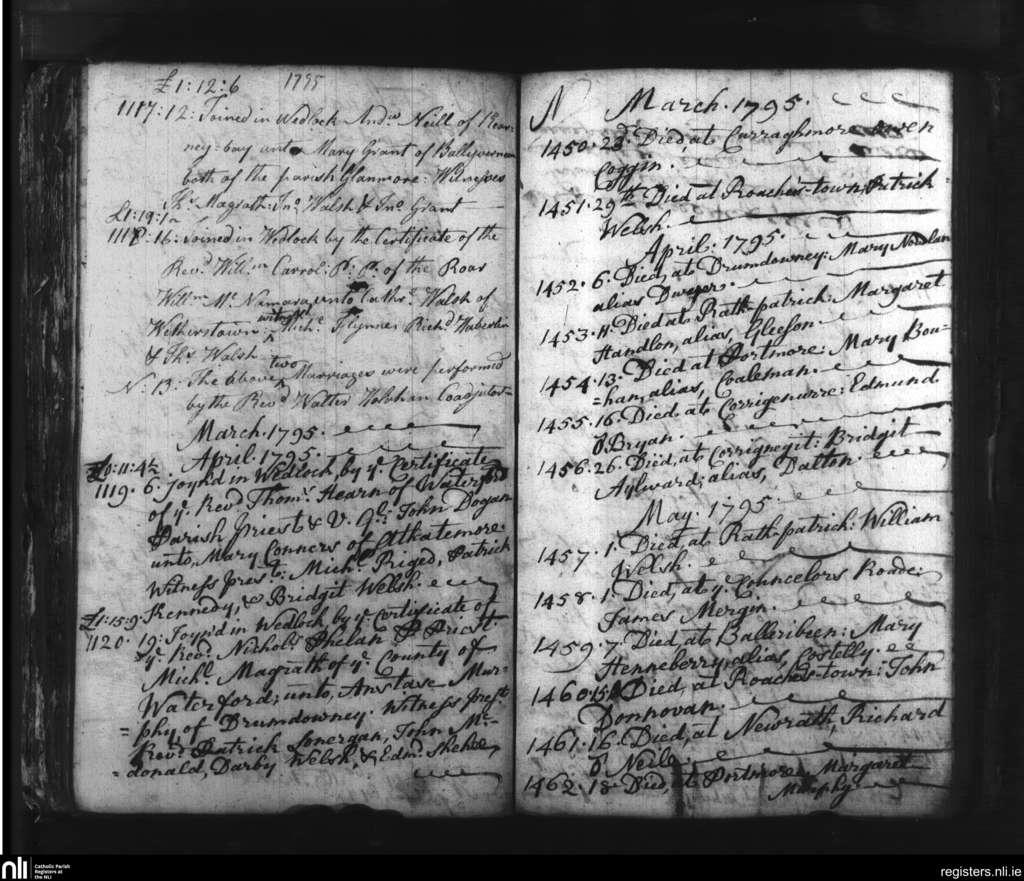 £1:12:6 1795
1117:12: Joined in Wedlock Andw Neill of
ney-bay unto Mary Grant of
both of the parish Glanmore: Witnesses
Thos Magrath: Jno Walsh & Jno Grant
£1:19:1
1118:16: Joined in Wedlock by the Certificate of the
Revd Willm Carrol: P: P: of the Roar
Willm Mc Namara, unto Cathe Walsh of
Witherstown. witness Miche Flynne Richd Haberlin
& Thos Walsh
N: B: The above two Marriages were performed
by the Revd Walter Coadjutor-
March. 1795.
April. 1795.
£0:11:4½
1119. 6. Joyn'd in Wedlock, by ye Certificate
of ye Revd Thoms Hearn of Waterford
Parish Priest & V. Gl: John Dogan
unto, Mary Connors of Alkatemore.
Witness Prest: Michl Piged, Patrick
Kennedy, & Bridgit Welsh.
£1:15:9
1120. 19: Joyn'd in Wedlock, by ye Certificate of
ye Revd Nichols Phelan P Priest
Michl Magrath of ye County of
Waterford; unto, Anstase Mur=
=phy of Drumdowney. Witness Prest
Revd Patrick Lonergan, John Mc=
=donald, Darby Welsh, & Edmd Shehee,
N March. 1795.
1450. 23. Died at Curraghmore
Coggin.
1451. 29th Died at Roaches-town; Patrick
Welsh.
April. 1795.
1452. 6. Died, at Drumdowney: Mary Nowlan
alias Dwyer.
1453. 11. Died at Rath-patrick: Margaret
Handlon, alias, Gleeson
1454. 13. Died at Portmore: Mary Bou=
=han, alias, Coaleman.
1455. 16. Died, at Corrigenurre: Edmund
O Bryan.
1456. 26. Died, at Corrignegit: Bridgit
Aylward; alias, Dalton.
May. 1795
1457. 1. Died at Rath-patrick: William
Welsh.
1458. 1. Died, at ye Councelors Roade:
James Mergin.
1459. 7. Died at Balleribeen: Mary
Henneberry, alias, Costelly.
1460. 15. Died, at Roaches-town: John
Donnovan.
1461. 16. Died, at Newrath, Richard
O Neile.
1462. 18. Died, at Portmore, Margaret
Murphy.
nli
Catholic Parish
Registers at
the NLI
registers.nli.ie